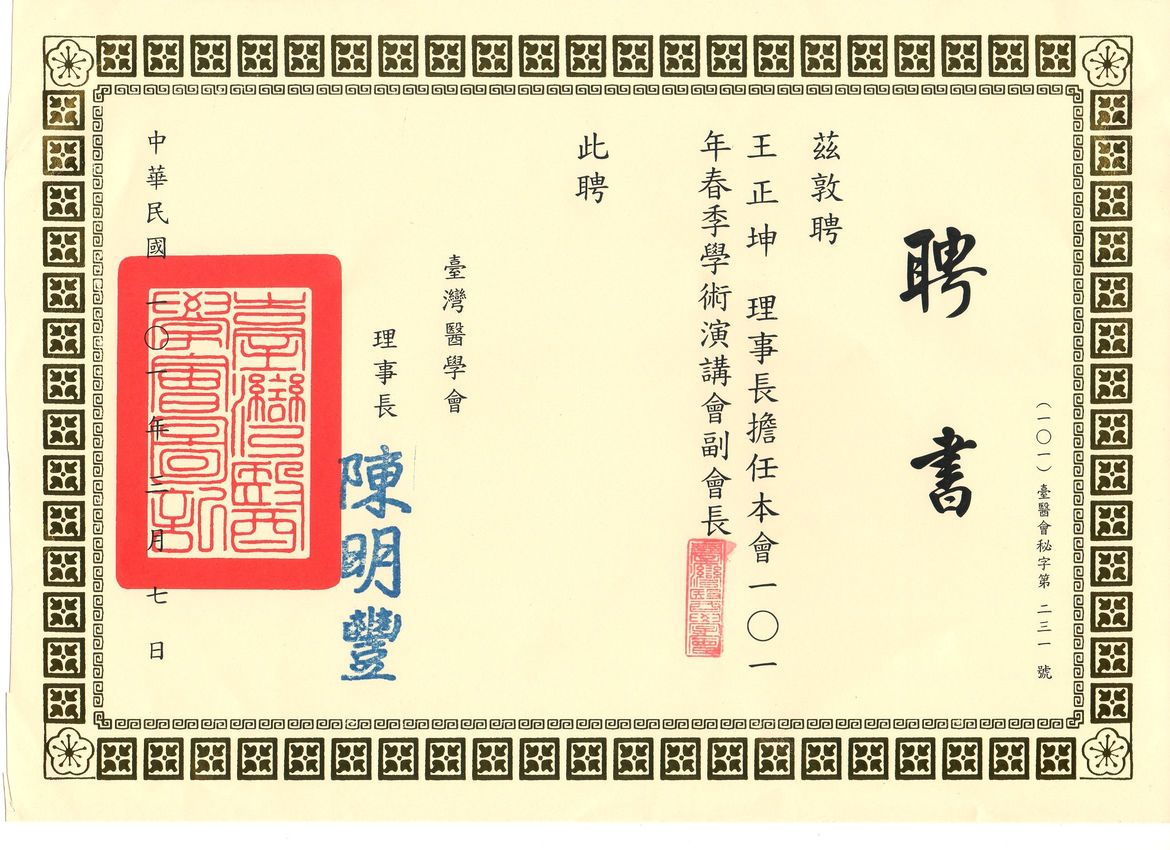 （一〇一）臺醫會秘字第 二三一 號
聘書
茲敦聘
王正坤 理事長擔任本會一〇一
年春季學術演講會副會長
此聘
臺灣醫學會
理事長 陳明豐
臺灣醫
學會圖記
中華民國一〇一年三月七日